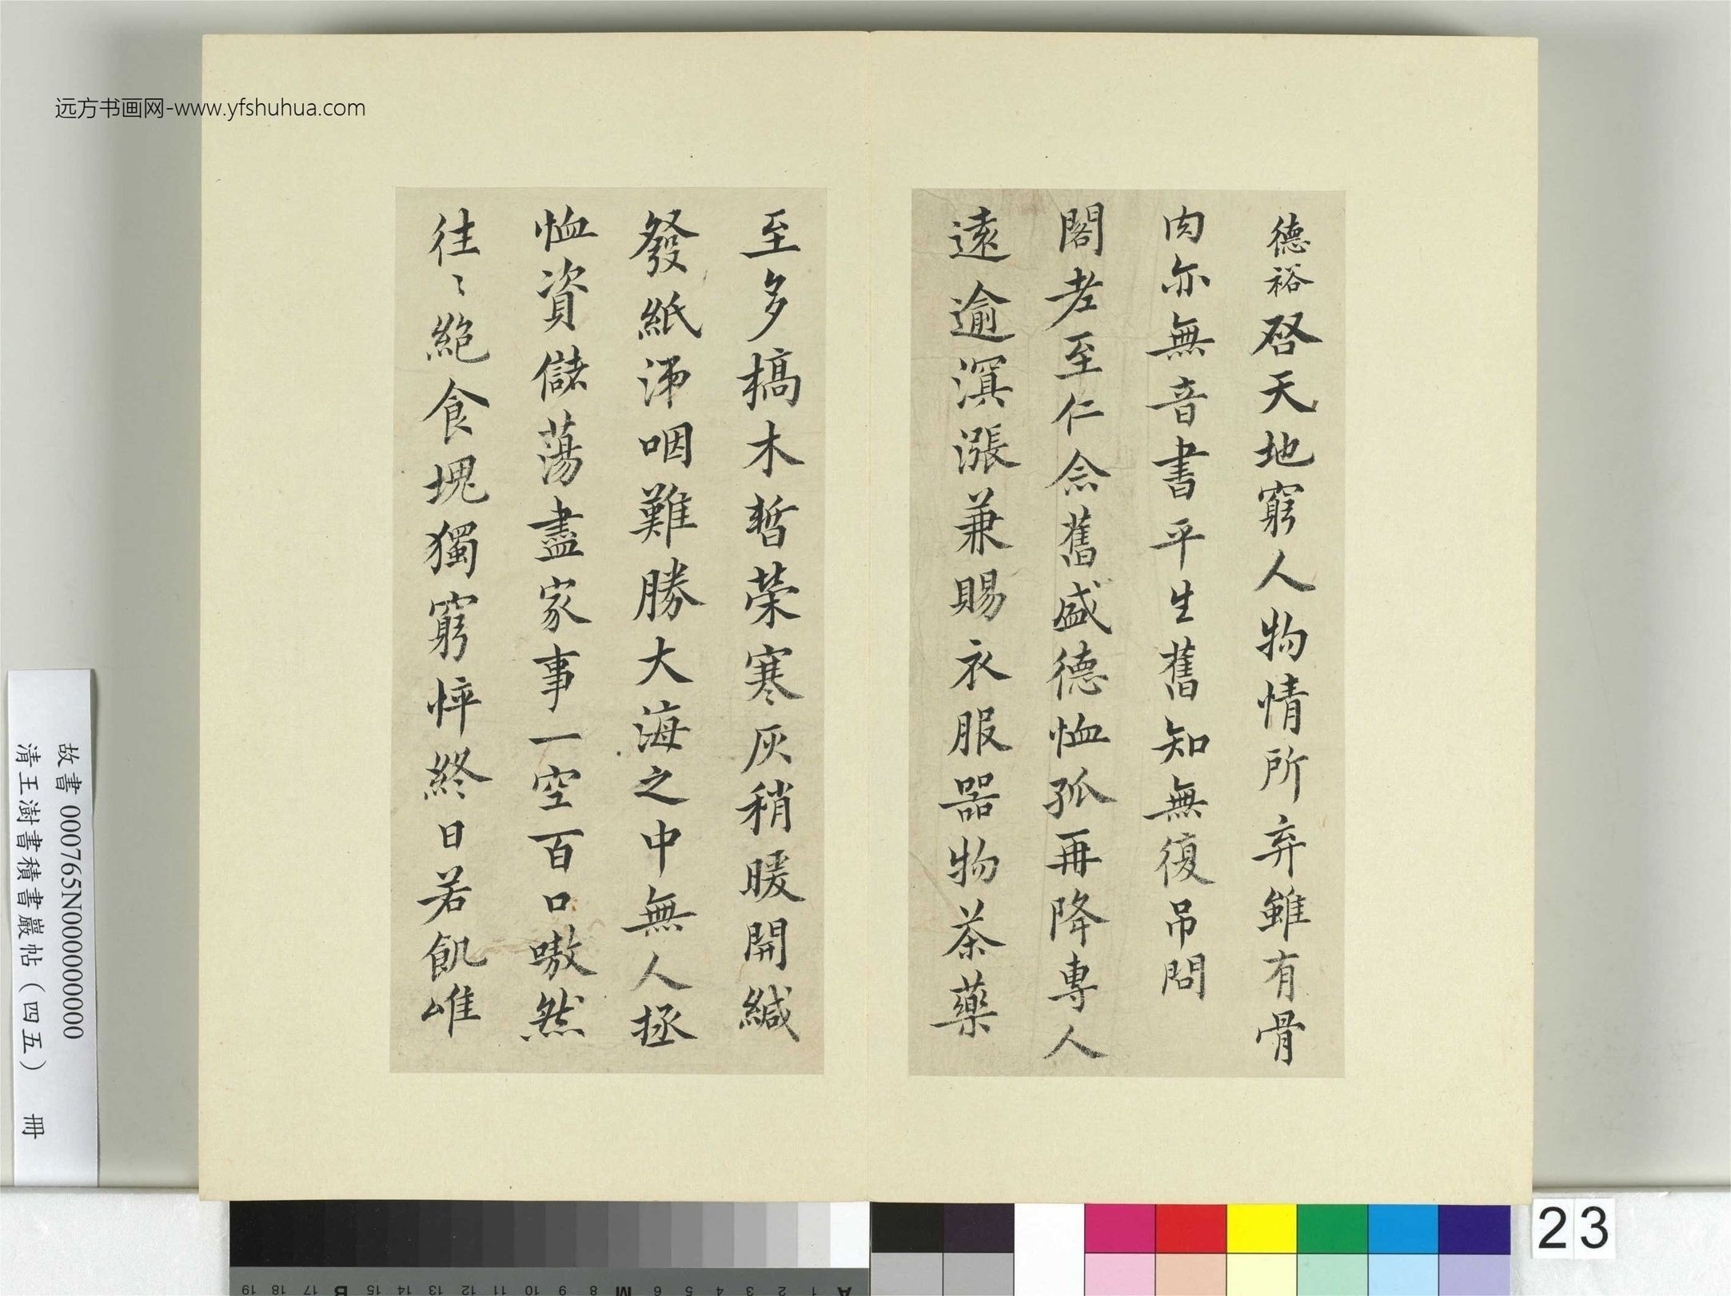 远方书画网-www.yfshuhua.com
德裕啓天地窮人物情所弃雖有骨
肉亦無音書平生舊知無復吊問
閣老至仁念舊盛德恤孤再降專人
遠逾溟漲兼賜衣服器物茶藥
至多槁木暫榮寒灰稍暖開緘
發紙涕咽難勝大海之中無人拯
恤資儲蕩盡家事一空百口嗷然
往〻絕食塊獨窮悴終日若飢唯
故書 000765N000000000
清王澍書積書巖帖（四五） 冊
23
A 1 2 3 4 5 6 M 8 9 10 11 12 13 14 15 B 17 18 19